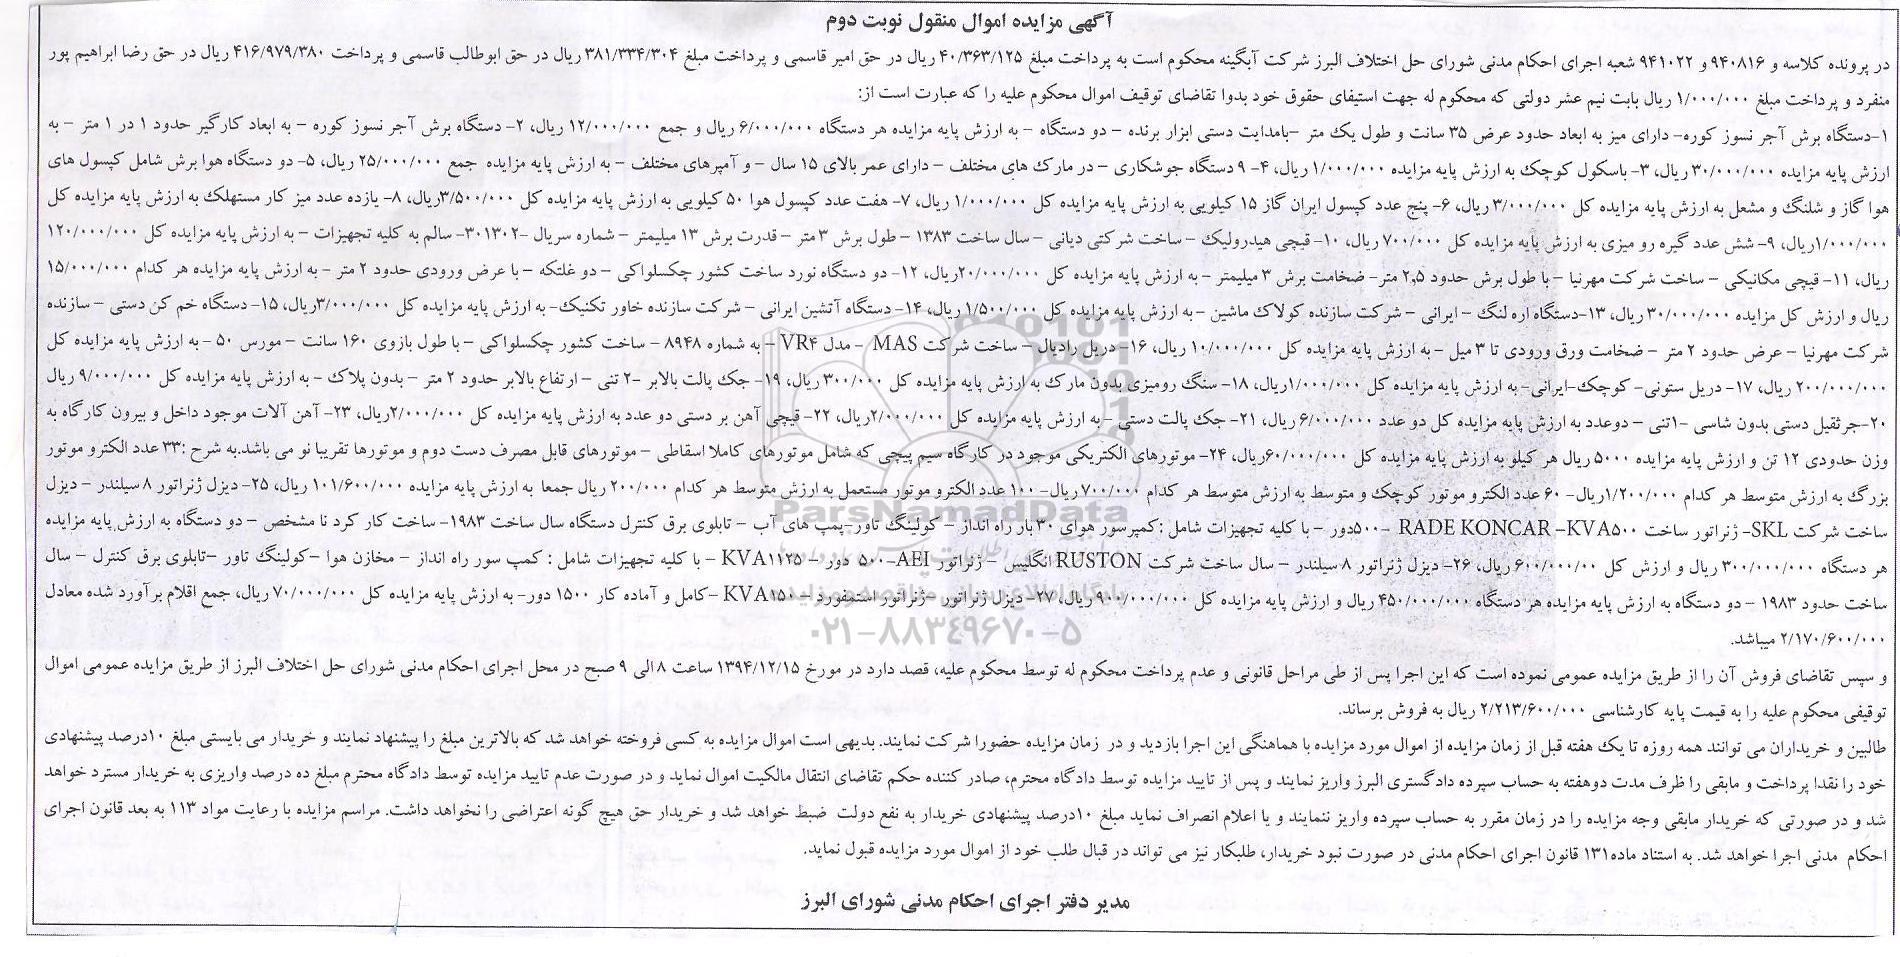 آگهی مزایده اموال منقول نوبت دوم
در پرونده کلاسه و ۹۴۰۸۱۶ و ۹۴۱۰۲۲ شعبه اجرای احکام مدنی شورای حل اختلاف البرز شرکت آبگینه محکوم است به پرداخت مبلغ ۴۰/۳۶۳/۱۲۵ ریال در حق امیر قاسمی و پرداخت مبلغ ۳۸۱/۳۳۴/۳۰۴ ریال در حق ابوطالب قاسمی و پرداخت ۴۱۶/۹۷۹/۳۸۰ ریال در حق رضا ابراهیم پور
منفرد و پرداخت مبلغ ۱/۰۰۰/۰۰۰ ریال بابت نیم عشر دولتی که محکوم له جهت استیفای حقوق خود بدوا تقاضای توقیف اموال محکوم علیه را که عبارت است از:
۱-دستگاه برش آجر نسوز کوره- دارای میز به ابعاد حدود عرض ۳۵ سانت و طول یک متر –بامدایت دستی ابزار برنده – دو دستگاه – به ارزش پایه مزایده هر دستگاه ۶/۰۰۰/۰۰۰ ریال و جمع ۱۲/۰۰۰/۰۰۰ ریال، ۲- دستگاه برش آجر نسوز کوره – به ابعاد کارگیر حدود ۱ در ۱ متر – به
ارزش پایه مزایده ۳۰/۰۰۰/۰۰۰ ریال، ۳- باسکول کوچک به ارزش پایه مزایده ۱/۰۰۰/۰۰۰ ریال، ۴- ۹ دستگاه جوشکاری – در مارک های مختلف – دارای عمر بالای ۱۵ سال – و آمپرهای مختلف – به ارزش پایه مزایده جمع ۲۵/۰۰۰/۰۰۰ ریال، ۵- دو دستگاه هوا برش شامل کپسول های
هوا گاز و شلنگ و مشعل به ارزش پایه مزایده کل ۳/۰۰۰/۰۰۰ ریال، ۶- پنج عدد کپسول ایران گاز ۱۵ کیلویی به ارزش پایه مزایده کل ۱/۰۰۰/۰۰۰ ریال، ۷- هفت عدد کپسول هوا ۵۰ کیلویی به ارزش پایه مزایده کل ۳/۵۰۰/۰۰۰ریال، ۸- یازده عدد میز کار مستهلک به ارزش پایه مزایده کل
۱/۰۰۰/۰۰۰ریال، ۹- شش عدد گیره رو میزی به ارزش پایه مزایده کل ۷۰۰/۰۰۰ ریال، ۱۰- قیچی هیدرولیک – ساخت شرکتی دیانی – سال ساخت ۱۳۸۳ – طول برش ۳ متر – قدرت برش ۱۳ میلیمتر – شماره سریال –۳۰۱۳۰۲- سالم به کلیه تجهیزات – به ارزش پایه مزایده کل ۱۲۰/۰۰۰/۰۰۰
ریال، ۱۱- قیچی مکانیکی – ساخت شرکت مهرنیا – با طول برش حدود ۲٫۵ متر- ضخامت برش ۳ میلیمتر – به ارزش پایه مزایده کل ۲۰/۰۰۰/۰۰۰ریال، ۱۲- دو دستگاه نورد ساخت کشور چکسلواکی – دو غلتکه – با عرض ورودی حدود ۲ متر – به ارزش پایه مزایده هر کدام ۱۵/۰۰۰/۰۰۰
ریال و ارزش کل مزایده ۳۰/۰۰۰/۰۰۰ ریال، ۱۳-دستگاه اره لنگ – ایرانی – شرکت سازنده کولاک ماشین –به ارزش پایه مزایده کل ۱/۵۰۰/۰۰۰ ریال، ۱۴- دستگاه آتشین ایرانی – شرکت سازنده خاور تکنیک- به ارزش پایه مزایده کل ۳/۰۰۰/۰۰۰ریال، ۱۵- دستگاه خم کن دستی – سازنده
شرکت مهرنیا – عرض حدود ۲ متر – ضخامت ورق ورودی تا ۳ میل – به ارزش پایه مزایده کل ۱۰/۰۰۰/۰۰۰ ریال، ۱۶- دریل رادیال – ساخت شرکت MAS – مدل VR۴ – به شماره ۸۹۴۸ – ساخت کشور چکسلواکی – با طول بازوی ۱۶۰ سانت – مورس ۵۰ – به ارزش پایه مزایده کل
۲۰۰/۰۰۰/۰۰۰ ریال، ۱۷- دریل ستونی- کوچک-ایرانی- به ارزش پایه مزایده کل ۱/۰۰۰/۰۰۰ریال، ۱۸- سنگ رومیزی بدون مارک به ارزش پایه مزایده کل ۳۰۰/۰۰۰ ریال، ۱۹- جک پالت بالابر –۲ تنی – ارتفاع بالابر حدود ۲ متر – بدون پلاک – به ارزش پایه مزایده کل ۹/۰۰۰/۰۰۰ ریال
۲۰-جرثقیل دستی بدون شاسی –۱تنی – دوعدد به ارزش پایه مزایده کل دو عدد ۶/۰۰۰/۰۰۰ ریال، ۲۱- جک پالت دستی – به ارزش پایه مزایده کل ۲/۰۰۰/۰۰۰ریال، ۲۲- قیچی آهن بر دستی دو عدد به ارزش پایه مزایده کل ۲/۰۰۰/۰۰۰ریال، ۲۳- آهن آلات موجود داخل و بیرون کارگاه به
وزن حدودی ۱۲ تن و ارزش پایه مزایده ۵۰۰۰ ریال هر کیلو به ارزش پایه مزایده کل ۶۰/۰۰۰/۰۰۰ریال، ۲۴- موتورهای الکتریکی موجود در کارگاه سیم پیچی که شامل موتورهای کاملا اسقاطی – موتورهای قابل مصرف دست دوم و موتورها تقریبا نو می باشد.به شرح :۳۳ عدد الکترو موتور
بزرگ به ارزش متوسط هر کدام ۱/۲۰۰/۰۰۰ریال- ۶۰ عدد الکترو موتور کوچک و متوسط به ارزش متوسط هر کدام ۷۰۰/۰۰۰ریال- ۱۰۰ عدد الکترو موتور مستعمل به ارزش متوسط هر کدام ۲۰۰/۰۰۰ ریال جمعا به ارزش پایه مزایده ۱۰۱/۶۰۰/۰۰۰ ریال، ۲۵- دیزل ژنراتور ۸ سیلندر – دیزل
ساخت شرکت SKL- ژنراتور ساخت RADE KONCAR –KVA۵۰۰ –۵۰۰دور – با کلیه تجهیزات شامل :کمپرسور هوای ۳۰ بار راه انداز – کولینگ تاور-پمپ های آب – تابلوی برق کنترل دستگاه سال ساخت ۱۹۸۳- ساخت کار کرد نا مشخص – دو دستگاه به ارزش پایه مزایده
هر دستگاه ۳۰۰/۰۰۰/۰۰۰ ریال و ارزش کل ۶۰۰/۰۰۰/۰۰ ریال، ۲۶- دیزل ژنراتور ۸ سیلندر – سال ساخت شرکت RUSTON انگلیس – ژنراتور AEI-۵۰۰ دور – KVA۱۱۲۵ – با کلیه تجهیزات شامل : کمپ سور راه انداز – مخازن هوا –کولینگ تاور –تابلوی برق کنترل – سال
ساخت حدود ۱۹۸۳ – دو دستگاه به ارزش پایه مزایده هر دستگاه ۴۵۰/۰۰۰/۰۰۰ ریال و ارزش پایه مزایده کل ۹۰۰/۰۰۰/۰۰۰ ریال، ۲۷- دیزل ژنراتور –ژنراتور استمفورد – KVA۱۵۰ –کامل و آماده کار ۱۵۰۰ دور- به ارزش پایه مزایده کل ۷۰/۰۰۰/۰۰۰ ریال، جمع اقلام برآورد شده معادل
۲/۱۷۰/۶۰۰/۰۰۰ میباشد.
و سپس تقاضای فروش آن را از طریق مزایده عمومی نموده است که این اجرا پس از طی مراحل قانونی و عدم پرداخت محکوم له توسط محکوم علیه، قصد دارد در مورخ ۱۳۹۴/۱۲/۱۵ ساعت ۸ الی ۹ صبح در محل اجرای احکام مدنی شورای حل اختلاف البرز از طریق مزایده عمومی اموال
توقیفی محکوم علیه را به قیمت پایه کارشناسی ۲/۲۱۳/۶۰۰/۰۰۰ ریال به فروش برساند.
طالبین و خریداران می توانند همه روزه تا یک هفته قبل از زمان مزایده از اموال مورد مزایده با هماهنگی این اجرا بازدید و در زمان مزایده حضورا شرکت نمایند. بدیهی است اموال مزایده به کسی فروخته خواهد شد که بالاترین مبلغ را پیشنهاد نمایند و خریدار می بایستی مبلغ ۱۰درصد پیشنهادی
خود را نقدا پرداخت و مابقی را ظرف مدت دوهفته به حساب سپرده دادگستری البرز واریز نمایند و پس از تایید مزایده توسط دادگاه محترم، صادر کننده حکم تقاضای انتقال مالکیت اموال نماید و در صورت عدم تایید مزایده توسط دادگاه محترم مبلغ ده درصد واریزی به خریدار مسترد خواهد
شد و در صورتی که خریدار مابقی وجه مزایده را در زمان مقرر به حساب سپرده واریز ننمایند و یا اعلام انصراف نماید مبلغ ۱۰درصد پیشنهادی خریدار به نفع دولت ضبط خواهد شد و خریدار حق هیچ گونه اعتراضی را نخواهد داشت. مراسم مزایده با رعایت مواد ۱۱۳ به بعد قانون اجرای
احکام مدنی اجرا خواهد شد. به استناد ماده۱۳۱ قانون اجرای احکام مدنی در صورت نبود خریدار، طلبکار نیز می تواند در قبال طلب خود از اموال مورد مزایده قبول نماید.
مدیر دفتر اجرای احکام مدنی شورای البرز
ParsNamadData
۰۲۱-۸۸۳۴۹۶۷۰-۵